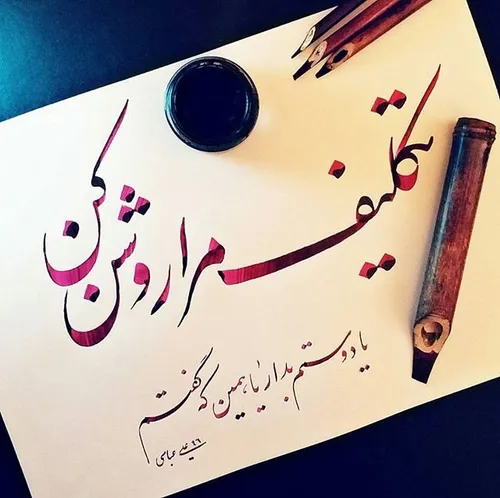 تکلیف مرا روشن کن
یا دوستم بدار یا همین که گفتم
علی عباسی ۹۶